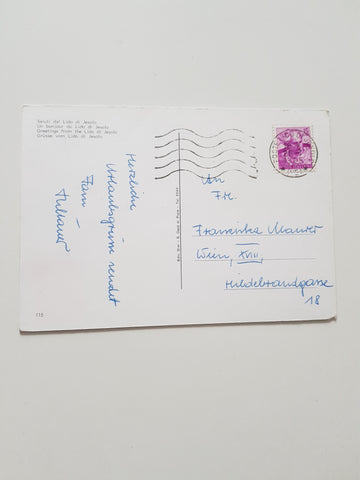 Saluti dal Lido di Jesolo
Un bonjour du Lido di Jesolo
Greetings from the Lido di Jesolo
Grüsse vom Lido di Jesolo
Herzliche
Urlaubsgrüsse sendet
Fam.
An
Fr.
Franziska Maurer
Wien, XVIII,
Hildebrandgasse
18
115